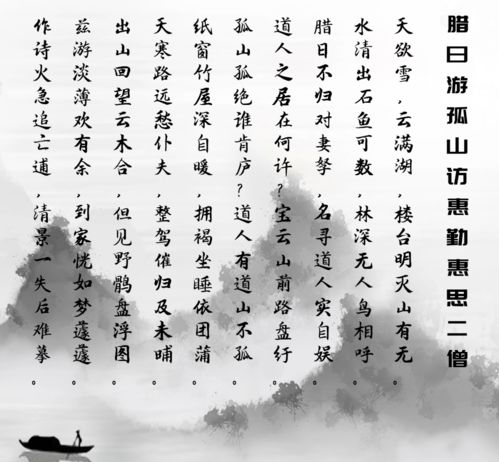 腊日游孤山访惠勤惠思二僧
天欲雪,云满湖,楼台明灭山有无。
水清出石鱼可数,林深无人鸟相呼。
腊日不归对妻孥,名寻道人实自娱。
道人之居在何许?宝云山前路盘纡。
孤山孤绝谁肯庐?道人有道山不孤。
纸窗竹屋深自暖,拥褐坐睡依团蒲。
天寒路远愁仆夫,整驾催归及未晡。
出山回望云木合,但见野鹘盘浮图。
兹游淡薄欢有余,到家恍如梦蘧蘧。
作诗火急追亡逋,清景一失后难摹。